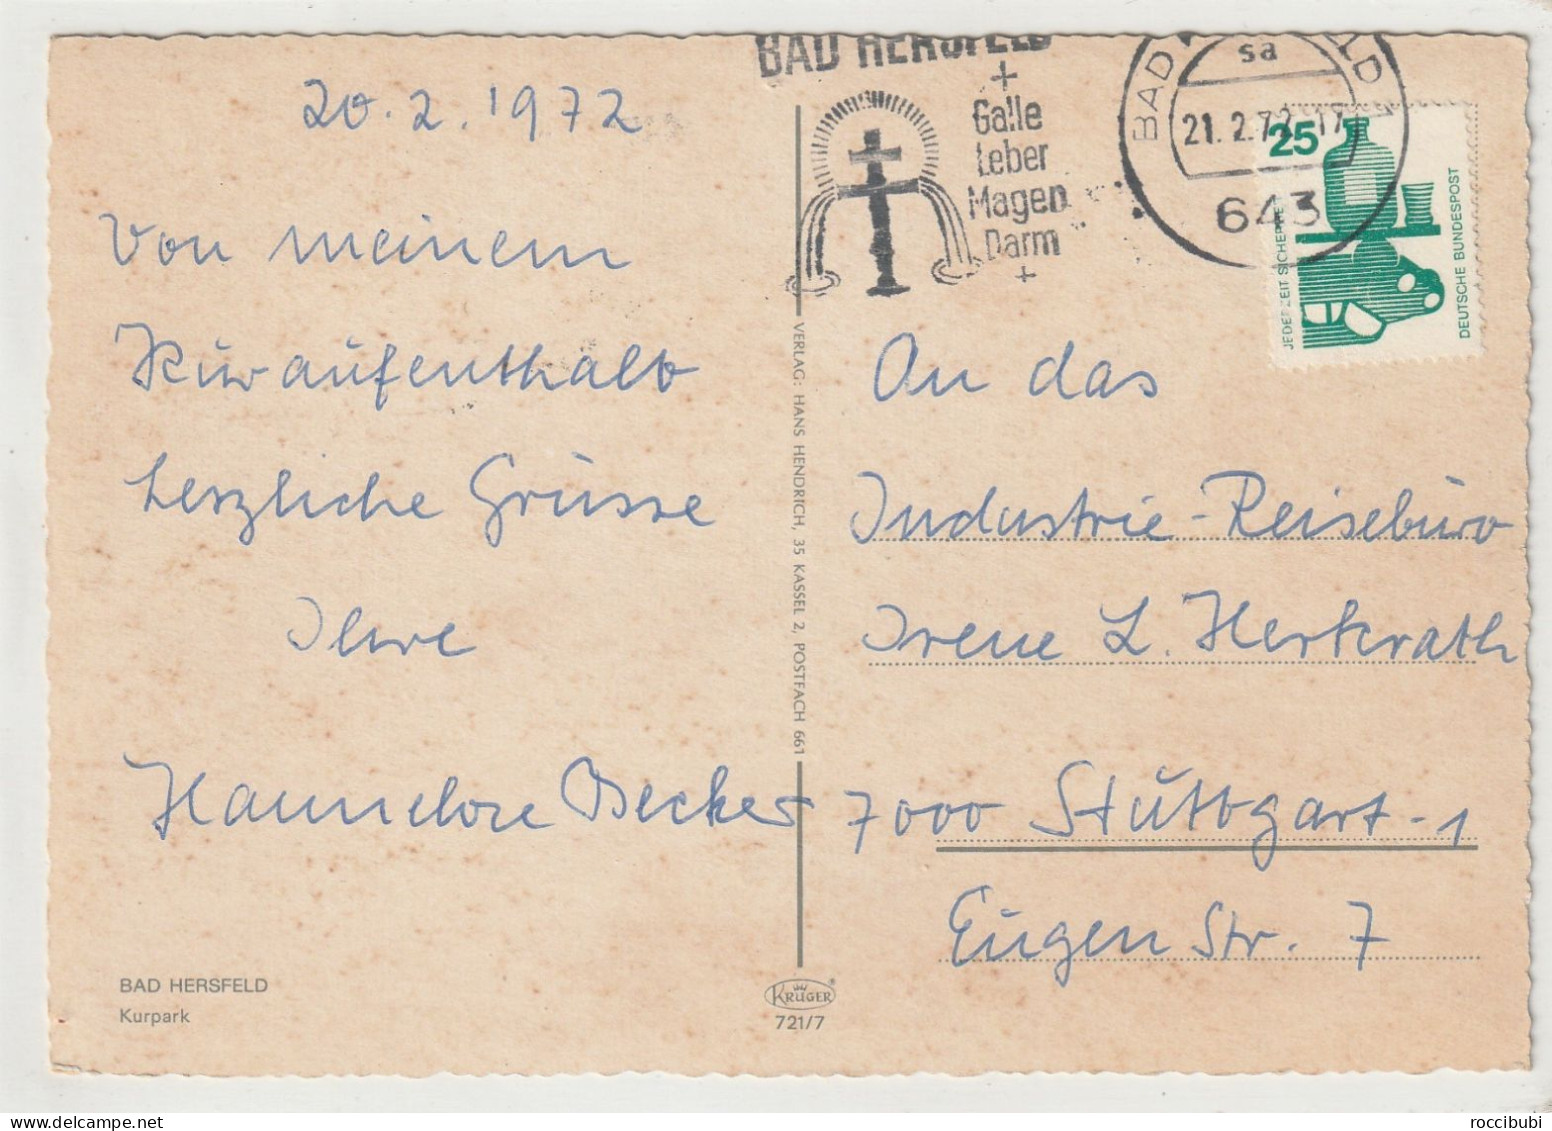 20.2.1972
Von meinem
Kuraufenthalt
herzliche Grüsse
Ihre
Hannelore Becker
BAD HERSFELD
Kurpark
BAD HERSFELD
+
Galle
Leber
Magen
Darm
+
BAD
LD
sa
21.2.72-17
643
25
JEDERZEIT SICHERHEIT
DEUTSCHE BUNDESPOST
VERLAG: HANS HENDRICH, 35 KASSEL 2, POSTFACH 661
KRÜGER
721/7
An das
Industrie-Reisebüro
Irene L. Herkrath
7000 Stuttgart-1
Eugen Str. 7
roccibubi